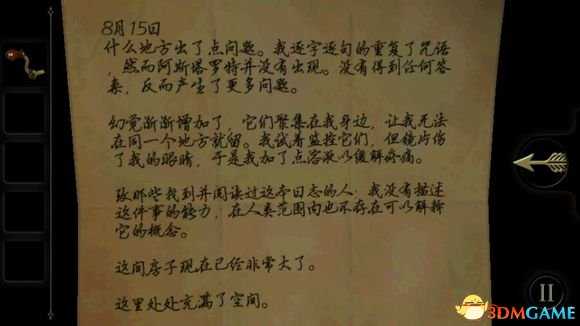 8月15日
什么地方出了点问题。我逐字逐句的重复了咒语
，然而阿斯塔罗特并没有出现。没有得到任何答
案，反而产生了更多问题。
幻觉渐渐增加了，它们聚集在我身边，让我无法
在同一个地方就留。我试着监控它们，但镜片伤
了我的眼睛，于是我加了点溶液以缓解疼痛。
致那些找到并阅读过这本日志的人：我没有描述
这件事的能力，在人类范围内也不存在可以解释
它的概念。
这间房子现在已经非常大了。
这里处处充满了空间。
3DMGAME